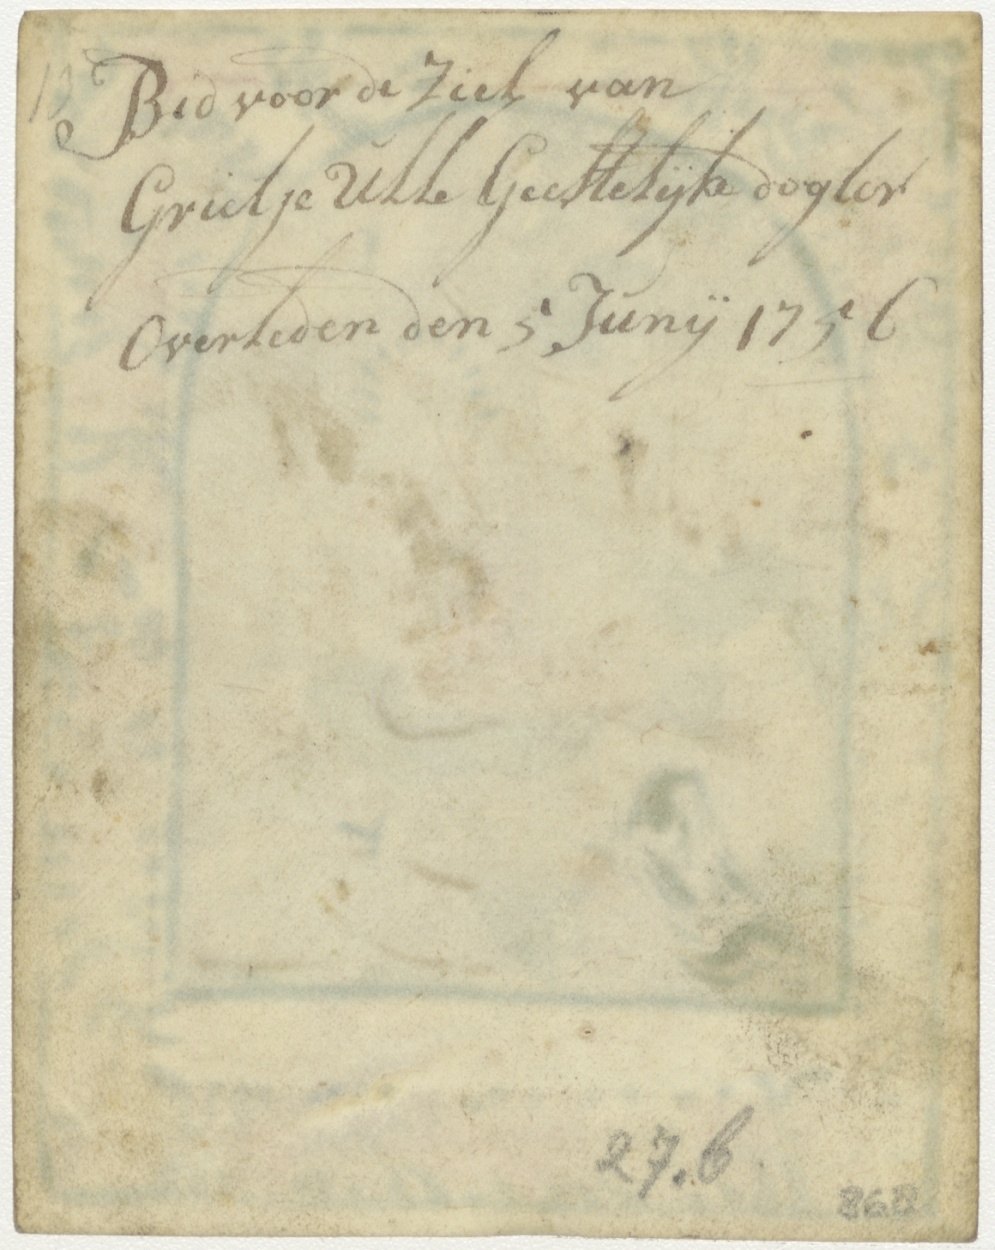 Bid voor de Ziel van
Grietje Ulle Geestelijke dogter
Overleden den 5 Junij 1756
27.6
868